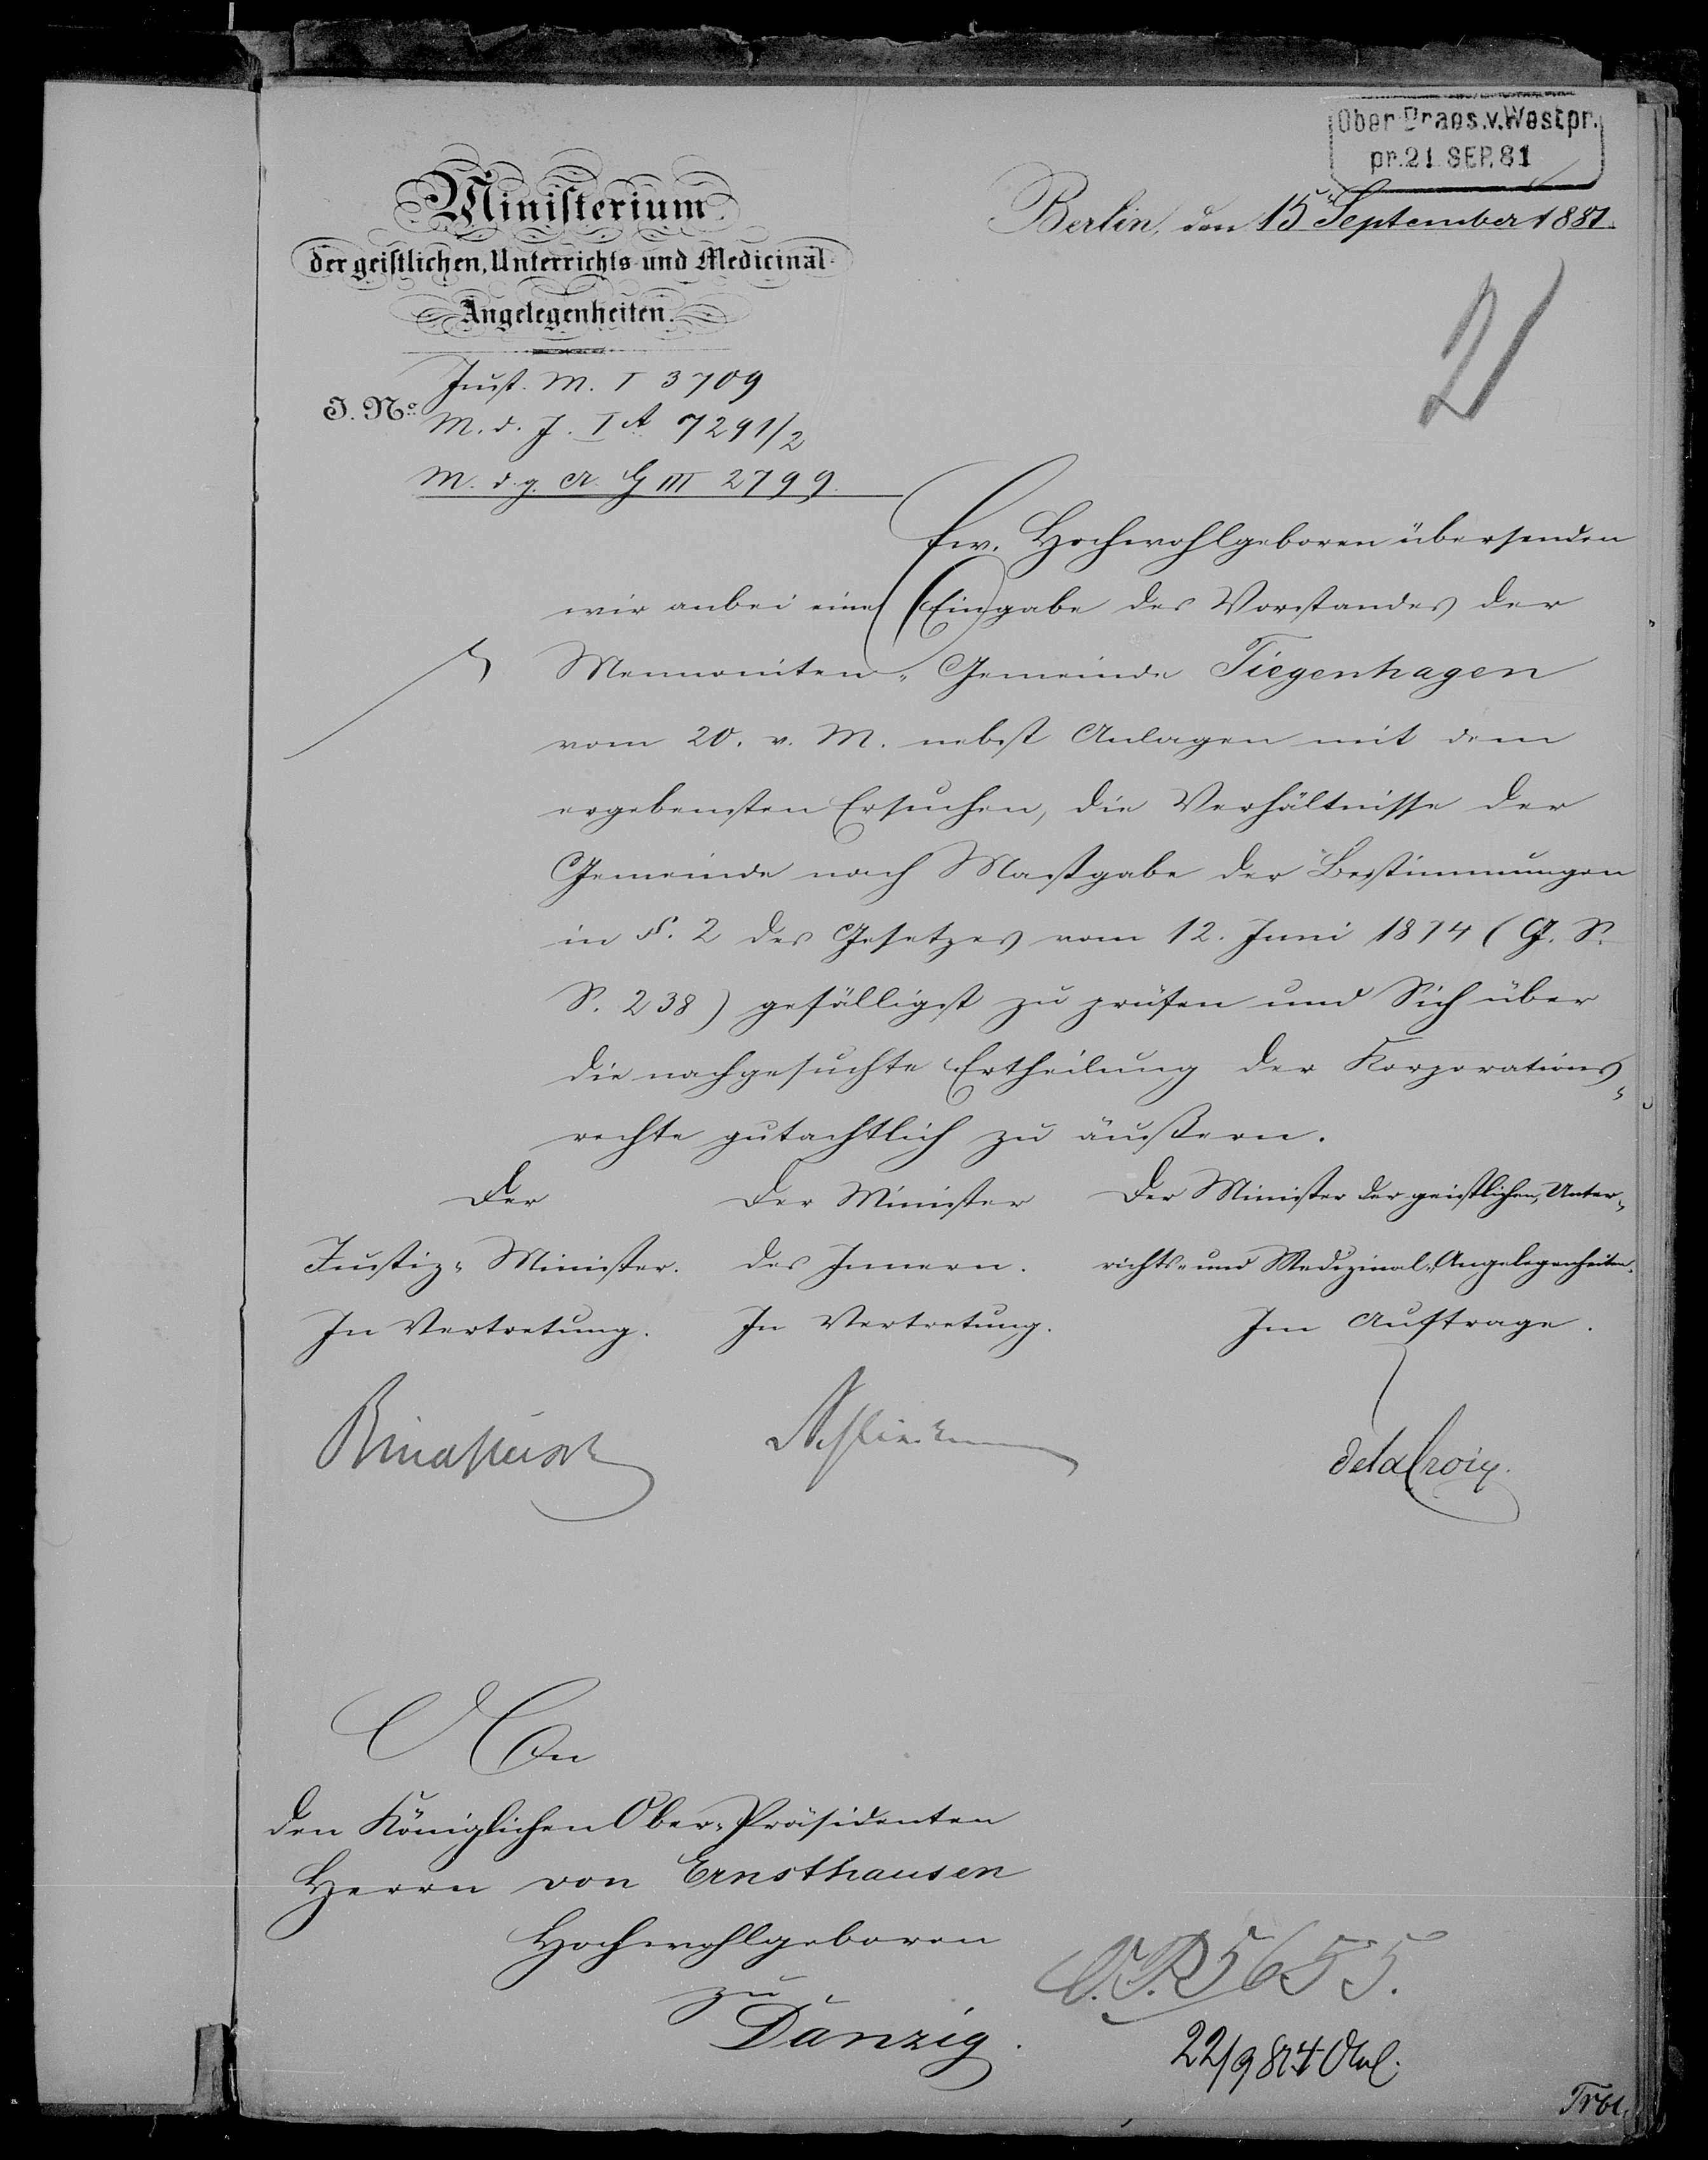 Ober-Praes.v.Westpr.
pr. 21. SEP. 81
Ministerium
der geistlichen, Unterrichts- und Medicinal-
Angelegenheiten.
Berlin, den 15. September 1881.
21
J. No.
Just. M. I 3709
M. d. J. I A 7291/2
M. d. g. A. G III 2799.
Ew. Hochwohlgeboren übersenden
wir anbei eine Eingabe des Vorstandes der
Mennoniten-Gemeinde Tiegenhagen
vom 20. v. M. nebst Anlagen mit dem
ergebensten Ersuchen, die Verhältnisse der
Gemeinde nach Maßgabe der Bestimmungen
in §. 2 des Gesetzes vom 12. Juni 1874 (G. S.
S. 238) gefälligst zu prüfen und Sich über
die nachgesuchte Ertheilung der Korporations-
rechte gutachtlich zu äußern.
Der
Justiz-Minister.
In Vertretung.
Der Minister
des Innern.
In Vertretung.
Der Minister der geistlichen, Unter-
richts- und Medizinal-Angelegenheiten.
Im Auftrage.
de la Croix.
An
den Königlichen Ober-Präsidenten
Herrn von Ernsthausen
Hochwohlgeboren
zu
Danzig.
O.P. 5655.
22/9 81